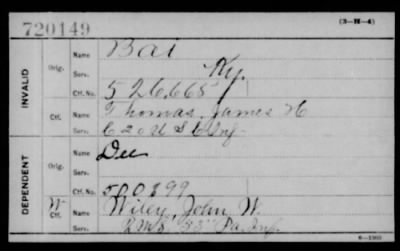 720149
(3-H-4)
INVALID
Orig.
Name Bai
Serv. Ky.
Ctf. No. 526,665
Ctf.
Name Thomas, James H
Serv. 62 U S C Inf.
DEPENDENT
Orig.
Name Dee
Serv.
Ctf. No. 500899
W Ctf.
Name Wiley, John W.
Serv. Pa. Inf.
6-1903